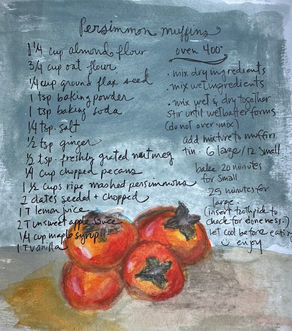 Persimmon muffins
1 1/4 cup almond flour
3/4 cup oat flour
1/4 cup ground flax seed
1 tsp baking powder
1 tsp baking soda
1/4 tsp. salt
1/2 tsp ginger
1/2 tsp. freshly grated nutmeg
1/4 cup chopped pecans
1 1/2 cups ripe mashed persimmons
2 dates seeded + chopped
1 T lemon juice
1 T unsweet apple sauce
1/4 cup maple syrup
1 T vanilla
oven 400°
• mix dry ingredients
• mix wet ingredients
• mix wet & dry together
Stir until wet batter forms
(do not over mix)
add mixture to muffin
tin. 6 large/12 small
bake 20 minutes
for small
25 minutes for
large
(insert toothpick to
check for doneness)
Let cool before eating
enjoy